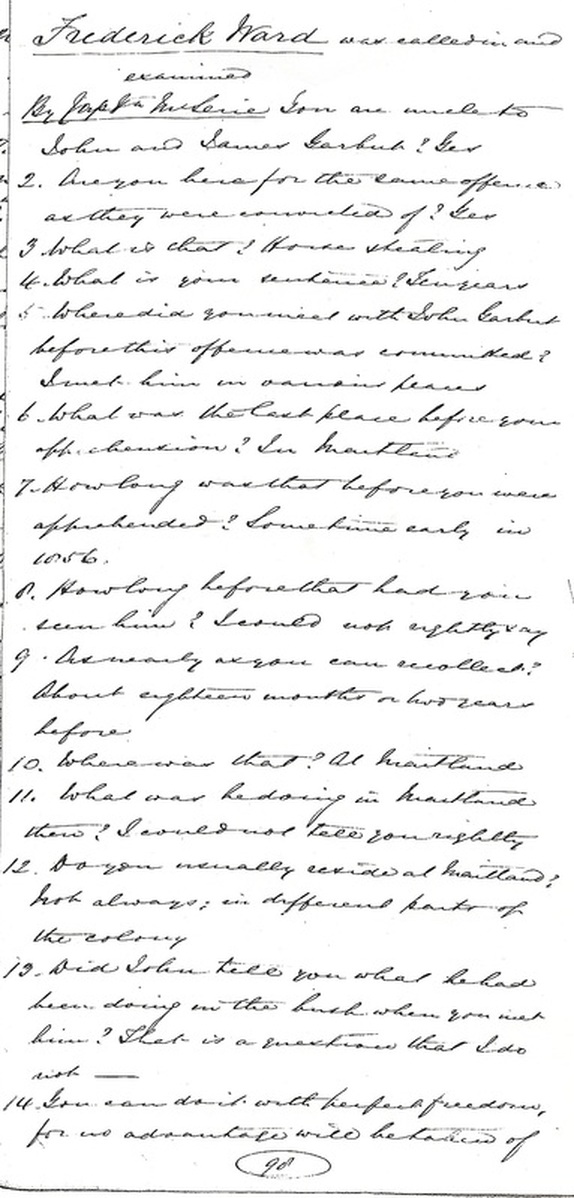 Frederick Ward was called in and
examined
By Captn McLerie You are uncle to
John and James Garbut? Yes
2. Are you here for the same offence
as they were convicted of? Yes
3 What is that? Horse stealing
4. What is your sentence? Ten years
5. Where did you meet with John Garbut
before this offence was committed?
I met him in various places
6. What was the last place before your
apprehension? In Maitland
7. How long was that before you were
apprehended? Sometime early in
1856.
8. How long before that had you
seen him? I could not rightly say
9. As nearly as you can recollect?
About eighteen months or two years
before
10. Where was that? At Maitland
11. What was he doing in Maitland
then? I could not tell you rightly
12. Do you usually reside at Maitland?
Not always; in different parts of
the colony
13. Did John tell you what he had
been doing in the bush when you met
him? That is a question that I do
not —
14. You can do it with perfect freedom,
for no advantage will be taken of
98